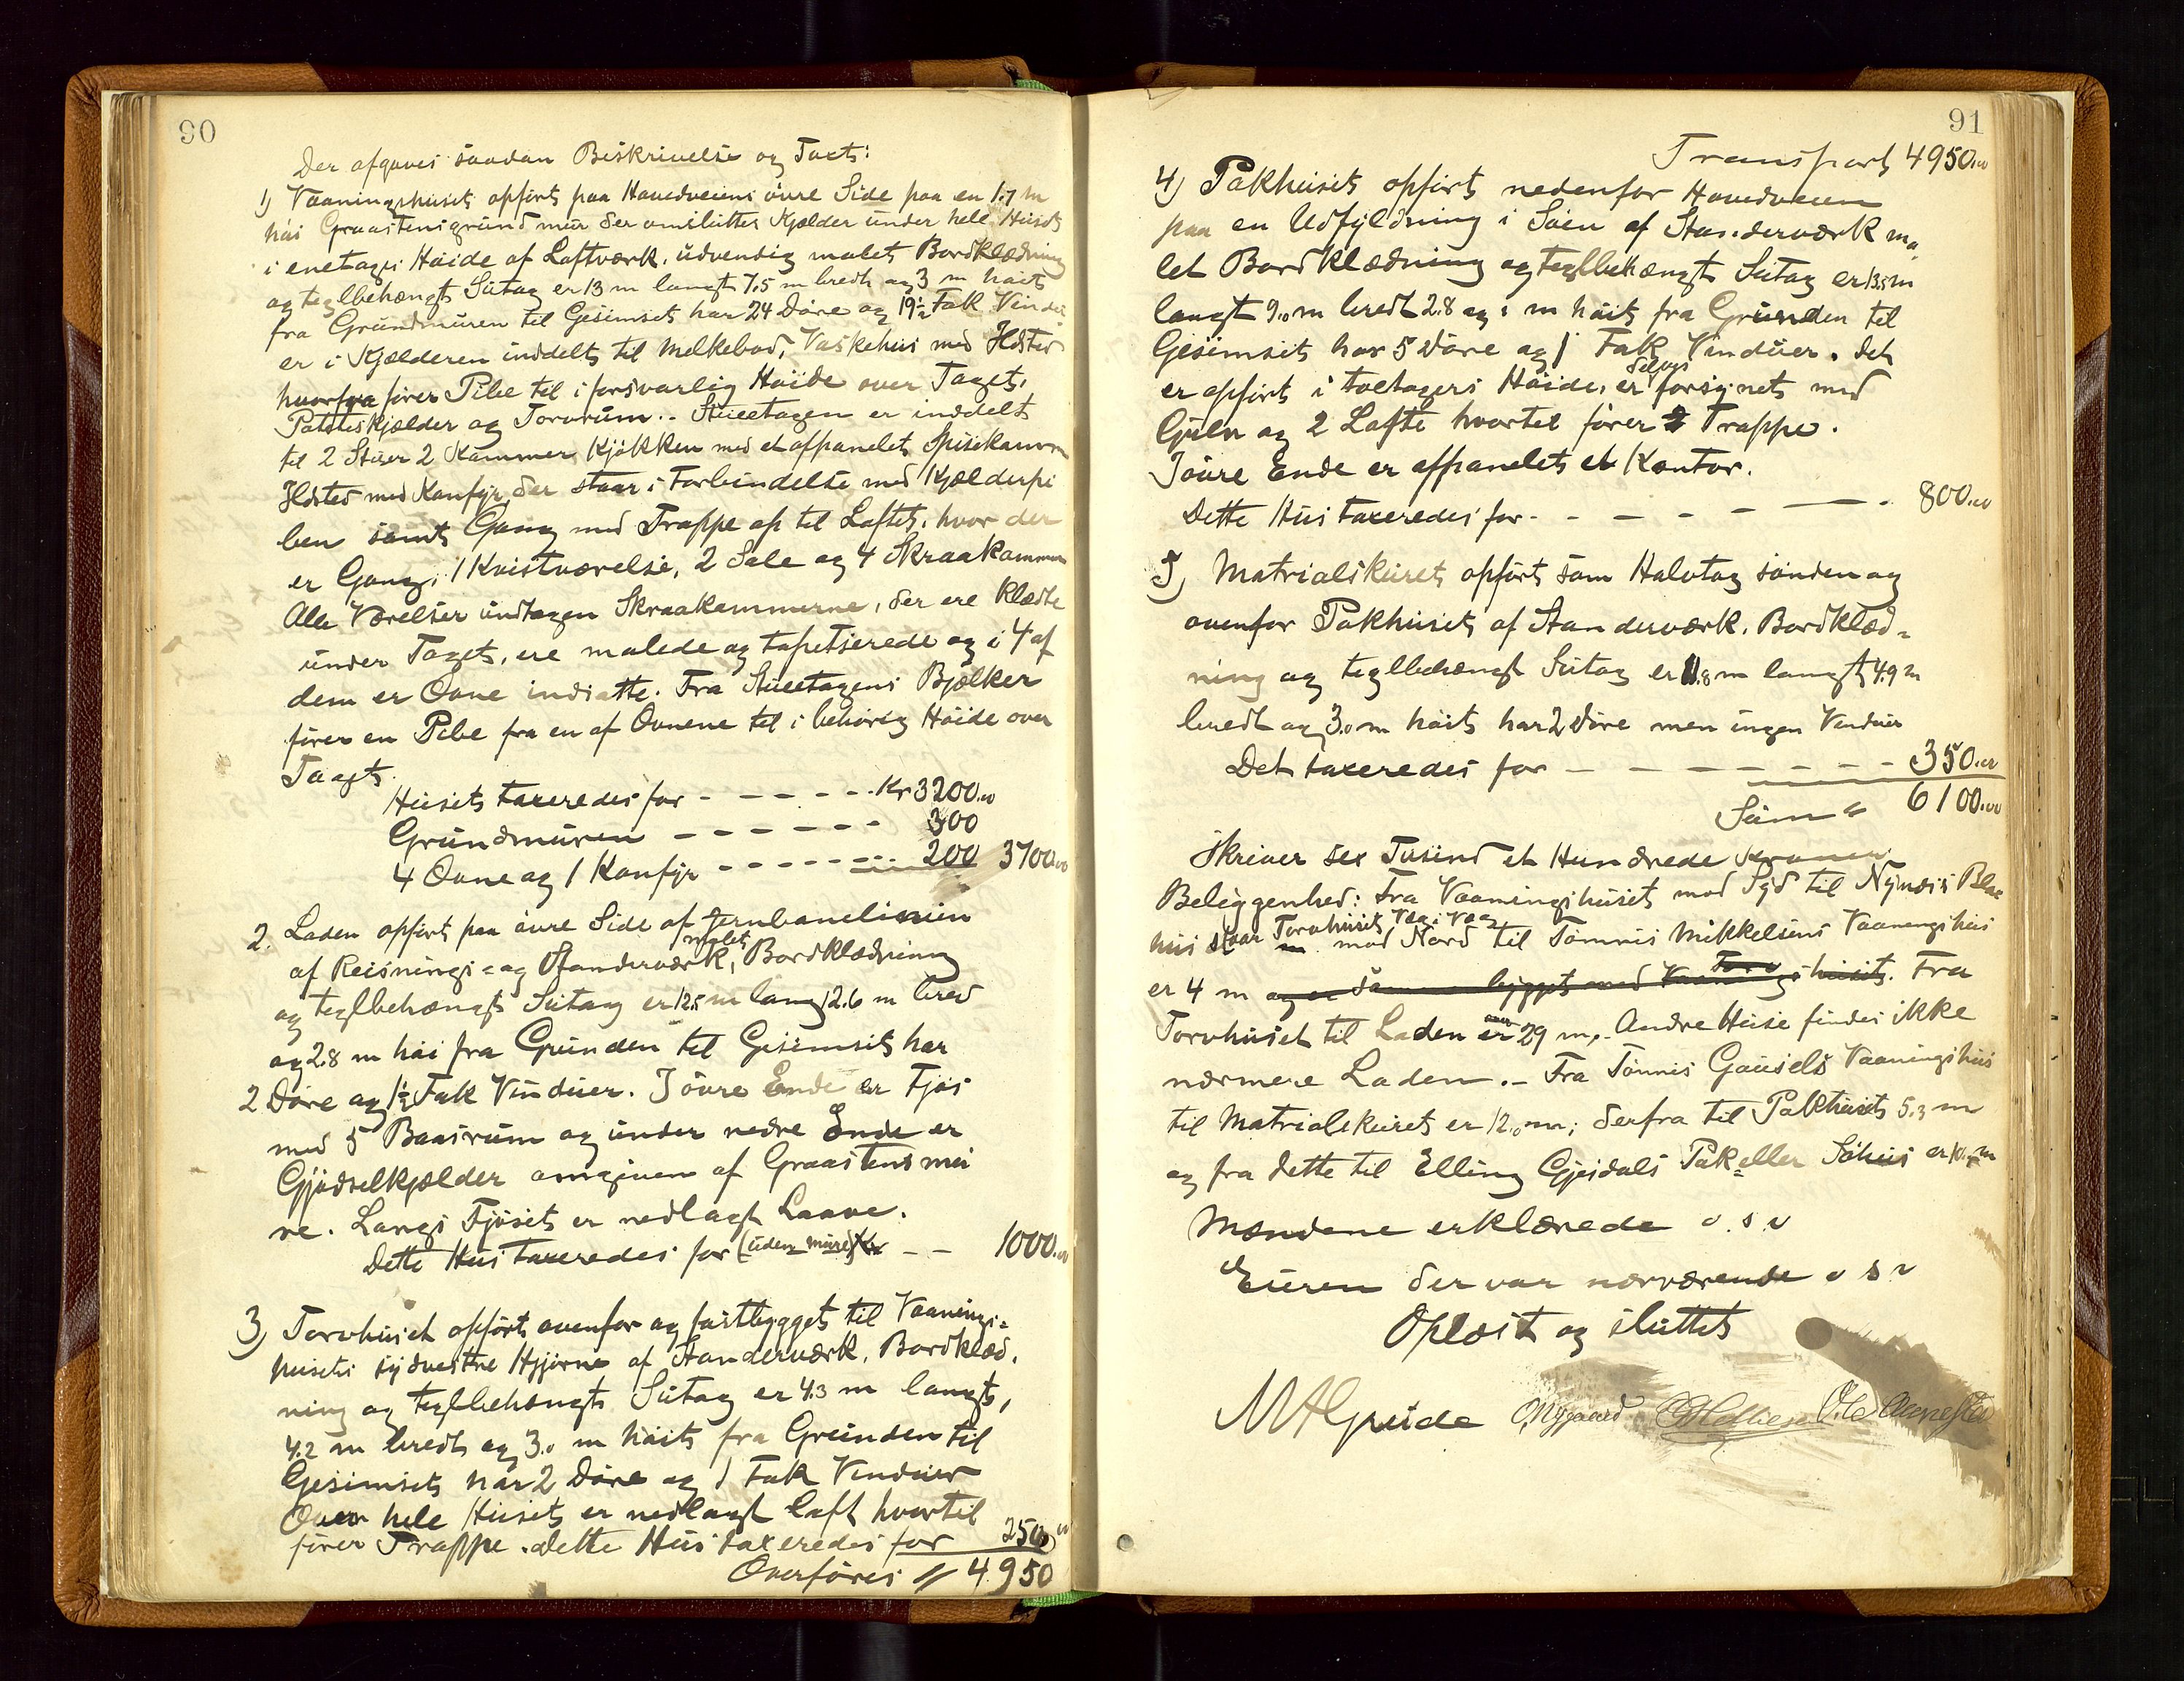 90
Der afgaves saadan Beskrivelse og Taxt:
1) Vaaningshuset opført paa Hovedveiens øvre Side paa en 1.7 m
høi Graastensgrundmur der omslutter Kjælder under hele Huset
i enetages Høide af Loftværk, udvendig malet Bordklædning
og teglbehængt Sutag er 13 m langt 7.5 m bredt og 3 m høit
fra Grundmuren til Gesimset har 24 Døre og 19½ Fak Vindu
er i Kjælderen inddelt til Melkebod, Vaskehus med Ildsted
hvorfra fører Pibe til i forsvarlig Høide over Taget,
Potetskjælder og Torvrum. Stueetagen er inddelt
til 2 Stuer 2 Kammer Kjøkken med et afpanelet Spisekamm
Ildsted med Komfyr, der staar i Forbindelse med Kjælderpi
ben samt Gang med Trappe op til Loftet, hvor der
er Gang, 1 Kvistværelse, 2 Sale og 4 Skraakammer
Alle Værelser undtagen Skraakammerne, der ere klædte
under Taget, ere malede og tapetserede og i 4 af
dem er Ovne indsatte. Fra Stueetagens Bjælker
fører en Pibe fra en af Ovnene til i behørig Høide over
Taget.
Huset taxeredes for - - - - - - Kr 3200.00
Grundmuren - - - - - - 300
4 Ovne og 1 Komfyr - - - - - - 200 3700.00
2. Laden opført paa øvre Side af Jernbanelinien
af Reisnings- og Standerværk, malet Bordklædning
og teglbehængt Sutag er 12.5 m lang 12.6 m bred
og 2.8 m høi fra Grunden til Gesimset har
2 Døre og 1½ Fak Vinduer. I øvre Ende er Fjøs
med 5 Baasrum og under nedre Ende er
Gjødselkjælder omgiven af Graastensmu
re. Langs Fjøset er nedlagt Laave.
Dette Hus taxeredes for (uden mure) Kr - - 1000.00
3) Torvhuset opført ovenfor og fastbygget til Vaanings-
husets sydvestre Hjørne af Standerværk, Bordklæd,
ning og teglbehængt Sutag er 4.3 m langt,
4.2 m bredt og 3.0 m høit fra Grunden til
Gesimset har 2 Døre og 1 Fak Vinduer
Over hele Huset er nedlagt Loft hvortil
fører Trappe. Dette Hus taxeredes for 250.00
Overføres " 4950
91
Transport 4950.00
4) Pakhuset opført nedenfor Hovedveien
paa en Udfyldning i Søen af Standerværk ma-
let Bordklædning og teglbehængt Sutag er 13.5 m
langt 9.0 m bredt 2.8 og m høit fra Grunden til
Gesimset har 5 Døre og 1 Fak Vinduer. Det
er opført i toetagers Høide, er forsynet med
Gulv og 2 Lofte hvortil fører 2 Trappe.
I øvre Ende er afpanelet et Kontor.
Dette Hus taxeredes for - - - - - - 800.00
5) Matrialskuret opført som Halvtag sønden og
ovenfor Pakhuset af Standerværk, Bordklæd-
ning og teglbehængt Sutag er 11.8 m langt 4.9 m
bredt og 3.0 m høit har 2 Døre men ingen Vinduer
Det taxeredes for - - - - - - 350.00
Sum " 6100.00
Skriver sex Tusind et Hundrede Kroner
Beliggenhed: Fra Vaaningshuset mod Syd til Nymoes Blae
hus staar Torvhuset Væg i Væg mod Nord til Tønnes Mikkelsens Vaaningshus
er 4 m og er sammenbygget med Torvhuset. Fra
Torvhuset til Laden er over 29 m. Andre Huse findes ikke
nærmere Laden. - Fra Tønnes Gausels Vaaningshus
til Matrialskuret er 12.0 m; derfra til Pakhuset 5.3 m
og fra dette til Elling Gjesdals Pak- eller Søhus er 10. m
Mændene erklærede o.s.v
Eieren der var nærværende o s v
Oplæst og sluttet
M A Grude O Nygaard Ole